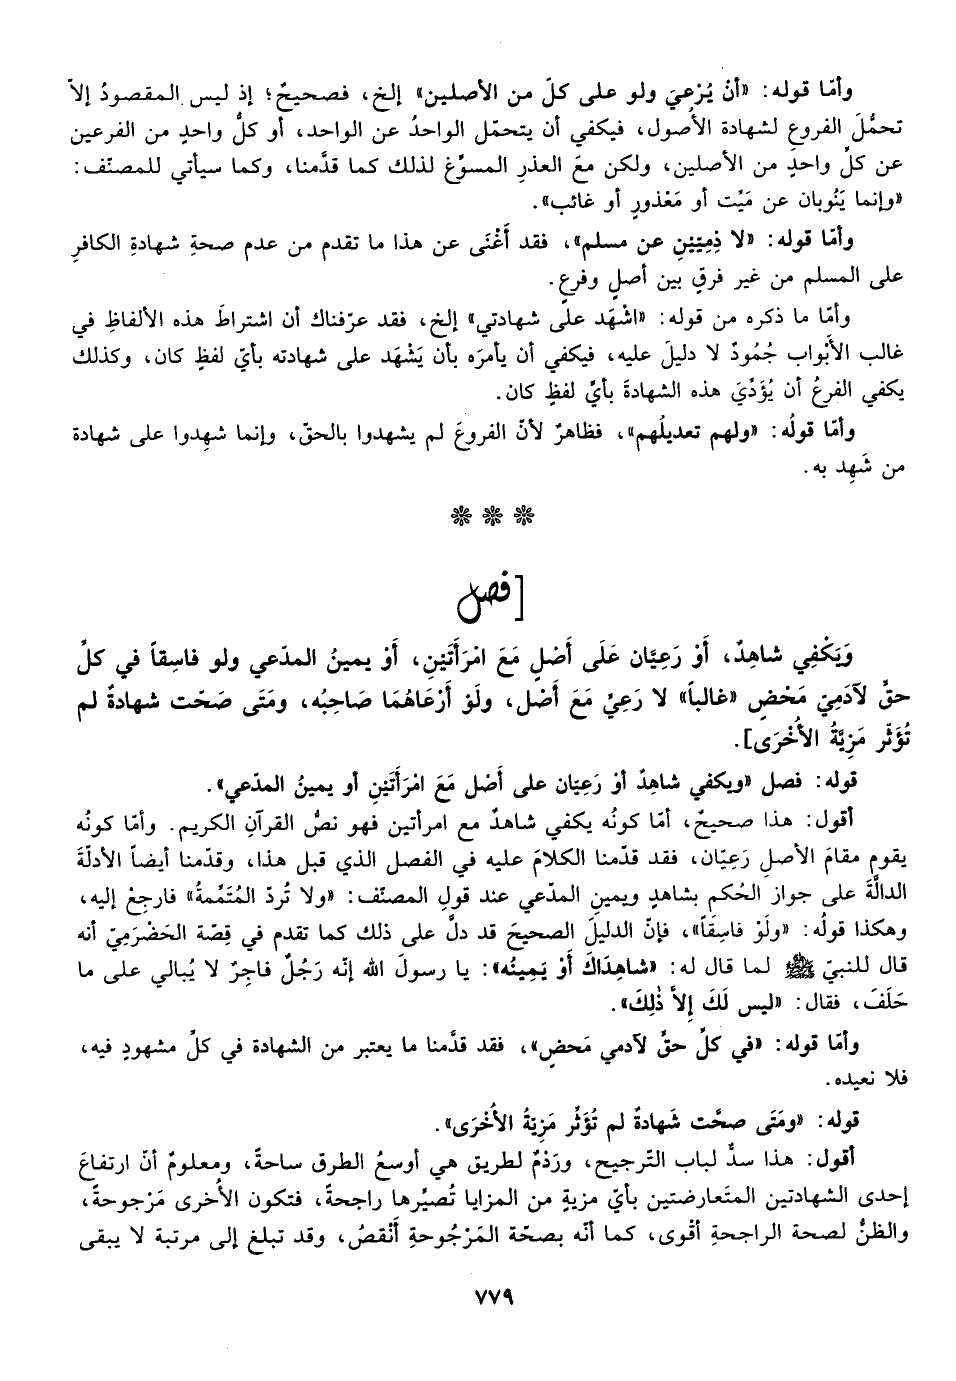 وأمّا قوله: «أنْ يُرْعِيَ ولو على كلّ من الأصلين» إلخ، فصحيحٌ؛ إذ ليس المقصودُ إلاّ
تحمُّلَ الفروعِ لشهادة الأُصول، فيكفي أن يتحمّل الواحدُ عن الواحد، أو كلُّ واحدٍ من الفرعين
عن كلِّ واحدٍ من الأصلين، ولكن معَ العذرِ المسوِّغ لذلك كما قدَّمنا، وكما سيأتي للمصنّف:
«وإنما يَنُوبان عن مَيِّت أو مَعْذورٍ أو غائب».
وأمّا قوله: «لا ذِمِّيَّيْنِ عن مسلم»، فقد أَغْنَى عن هذا ما تقدم من عدم صحةِ شهادةِ الكافرِ
على المسلم من غير فرقٍ بين أصلٍ وفرعٍ.
وأمّا ما ذكره من قوله: «اشْهَد على شهادتي» إلخ، فقد عرّفناك أن اشتراطَ هذه الألفاظِ في
غالب الأَبْواب جُمُودٌ لا دليلَ عليه، فيكفي أن يأمرَه بأن يَشْهَد على شهادته بأيّ لفظٍ كان، وكذلك
يكفي الفرعُ أن يُؤَدِّيَ هذه الشهادةَ بأيِّ لفظٍ كان.
وأمّا قولُه: «ولهم تعديلُهم»، فظاهرٌ لأنّ الفروعَ لم يشهدوا بالحقّ، وإنما شهِدوا على شهادة
من شَهِد به.
❊ ❊ ❊
[فصل
وَيَكْفِي شاهِدٌ، أَوْ رَعِيَّان عَلَى أَصْلٍ مَعَ امْرَأَتَيْنِ، أَو يمينُ المدّعي ولو فاسِقاً في كلِّ
حقٍّ لآدَمِيّ مَحْضٍ «غالباً» لا رَعِيٌّ مَعَ أَصْل، ولَوْ أَرْعَاهُمَا صَاحِبُه، ومَتَى صَحّت شهادةٌ لم
تُؤَثّر مَزِيَّةُ الأُخْرَى].
قوله: فصل «ويكفي شاهِدٌ أوْ رَعِيَّان على أَصْل مَعَ امْرَأَتَيْنِ أو يمينُ المدّعي».
أقول: هذا صحيحٌ، أمّا كونُه يكفي شاهدٌ مع امرأتين فهو نصُّ القرآنِ الكريم. وأمّا كونُه
يقوم مقامَ الأصلِ رَعِيّان، فقد قدّمنا الكلامَ عليه في الفصل الذي قبل هذا، وقدّمنا أيضاً الأدلّةَ
الدالَّةَ على جواز الحُكم بشاهدٍ ويمينِ المدّعي عند قولِ المصنّف: «ولا تُردّ المُتَمِّمةُ» فارجِعْ إليه،
وهكذا قولُه: «ولَوْ فاسِقَاً»، فإنّ الدليلَ الصحيحَ قد دلَّ على ذلك كما تقدم في قِصّة الحَضْرَمِيّ أنه
قال للنبيّ ﷺ لما قال له: «شاهِدَاكَ أَوْ يَمِينُه»: يا رسولَ الله إنّه رَجُلٌ فاجِرٌ لا يُبالي على ما
حَلَفَ، فقال: «ليس لَكَ إلاَّ ذٰلِكَ».
وأمّا قوله: «في كلِّ حقٍّ لآدمي مَحضٍ»، فقد قدَّمنا ما يعتبر من الشهادة في كلِّ مشهودٍ فيه،
فلا نعيده.
قوله: «ومَتَى صحَّت شَهادةٌ لم تُؤَثِّر مَزِيّةُ الأُخْرَى».
أقول: هذا سدٌّ لباب التّرجيح، ورَدْمٌ لطريق هي أوسعُ الطرق ساحةً، ومعلومٌ أنّ ارتفاعَ
إحدى الشهادتين المتَعارضتين بأيّ مزيةٍ من المزايا تُصيِّرها راجحةً، فتكون الأُخرى مَرْجوحةً،
والظنُّ لصحة الراجحةِ أقوى، كما أنّه بصحّة المَرْجُوحةِ أَنْقصُ، وقد تبلغ إلى مرتبة لا يبقى
٧٧٩